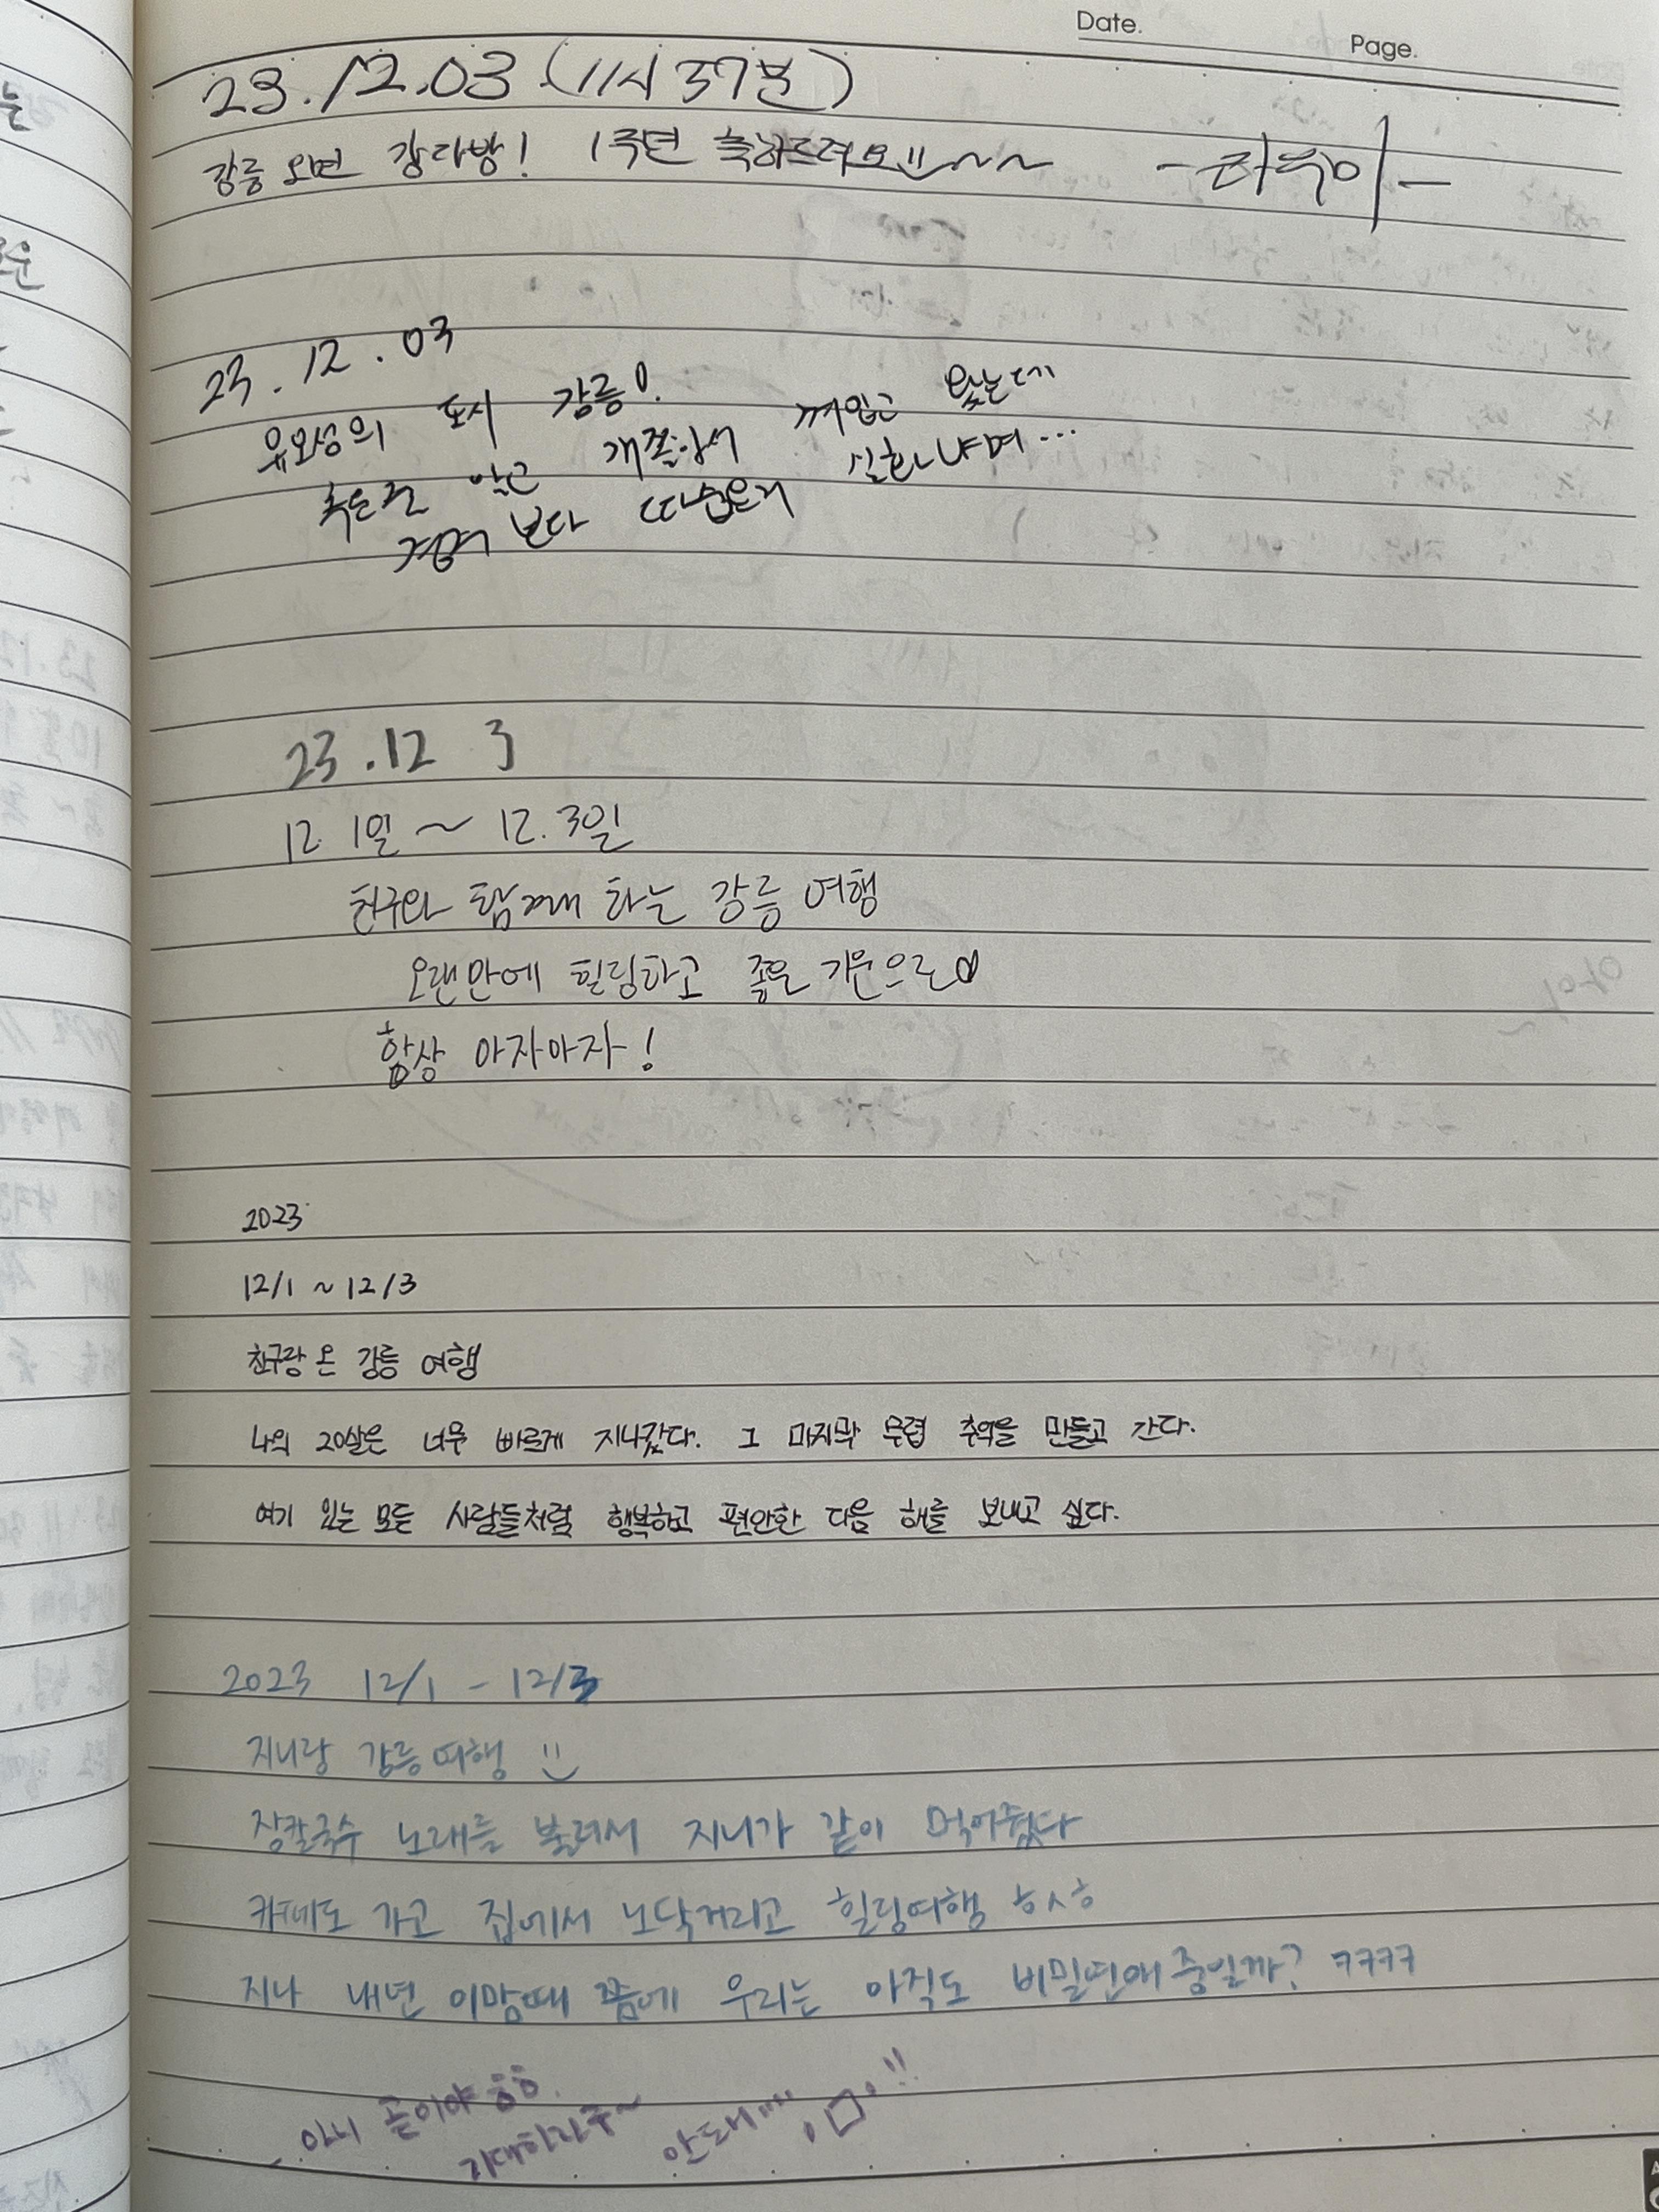 Date.
Page.
23.12.03 (11시 37분)
강릉 오면 강다방! 1주년 축하드려요 ~~
23.12.03
유오성의 도시 강릉!
꺼입고 왔는데
보다 따숩은거 실화냐며...
23.12 3
12. 1일 ~ 12. 3일
친구와 함께 하는 강릉 여행
오랜만에 힐링하고 좋은 기운으로
항상 아자아자!
2023
12/1 ~ 12/3
친구랑 온 강릉 여행
나의 20살은 너무 빠르게 지나갔다. 그 마지막 무렵 추억을 만들고 간다.
여기 있는 모든 사람들처럼 행복하고 편안한 다음 해를 보내고 싶다.
2023 12/1 - 12/3
지니랑 강릉여행
장칼국수 노래를 불러서 지니가 같이 먹어줬다
카페도 가고 집에서 노닥거리고 힐링여행 ㅎㅅㅎ
지나 내년 이맘때 쯤에 우리는 아직도 비밀연애중일까? ㅋㅋㅋㅋ
아니 끝이야 ㅎㅎ
기대하라구~
안돼